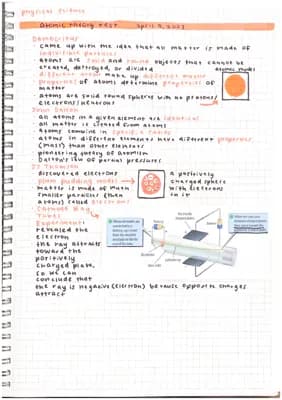 physical science
Atomic Theory Test April 9, 2023
Democritus
came up with the idea that all matter is made of
individual particles
atoms are solid and round objects that cannot be
created, destroyed, or divided
atomic model
different atoms make up different matter
properties of atoms determine properties of
matter
atoms are solid round spheres with no protons/
electrons/neutrons
John Dalton
all atoms in a given element are identical
all matter is created from atoms
atoms combine in specific ratios
atoms in different elements have different properties
(mass) than other elements
pioneering theory of atomism
Dalton's law of partial pressures
JJ Thomson
discovered electrons
plum pudding model
matter is made of much
smaller particles than
atoms called electrons
a positively
charged sphere
with electrons
in it
Cathode Ray
Tube
Experiment
revealed the
electron
the ray attracts
toward the
positively
charged plate,
so we can
conclude that
the ray is negative (electron) because opposite charges
attract